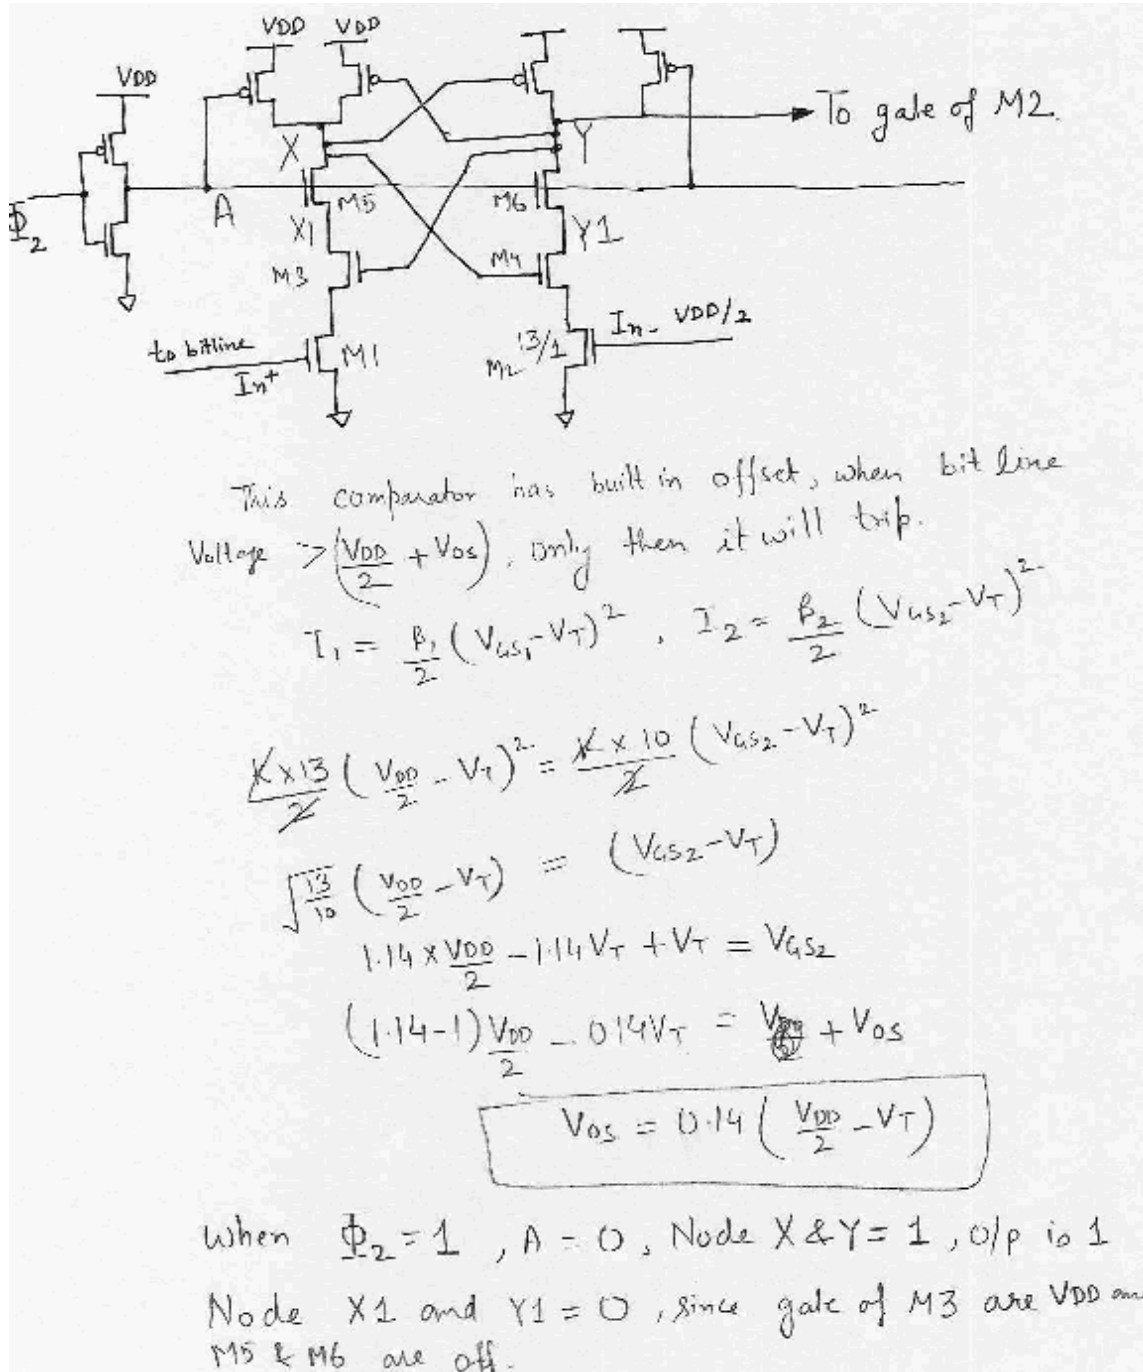 VDD VDD
VDD
To gate of M2.
X Y
Φ2 A M5 M6
X1 Y1
M3 M4
to bitline In+ M1 M2 13/1 In- VDD/2
This comparator has built in offset, when bit line
Voltage > (VDD/2 + VOS), only then it will trip.
I1 = β1/2 (VGS1-VT)², I2 = β2/2 (VGS2-VT)²
K×13/2 (VDD/2 - VT)² = K×10/2 (VGS2-VT)²
√13/10 (VDD/2 - VT) = (VGS2-VT)
1.14 × VDD/2 - 1.14VT + VT = VGS2
(1.14-1) VDD/2 - 014VT = + VOS
VOS = 0.14 (VDD/2 - VT)
When Φ2 = 1, A = 0, Node X & Y = 1, o/p is 1
Node X1 and Y1 = 0, since gate of M3 are VDD an
M5 & M6 are off.